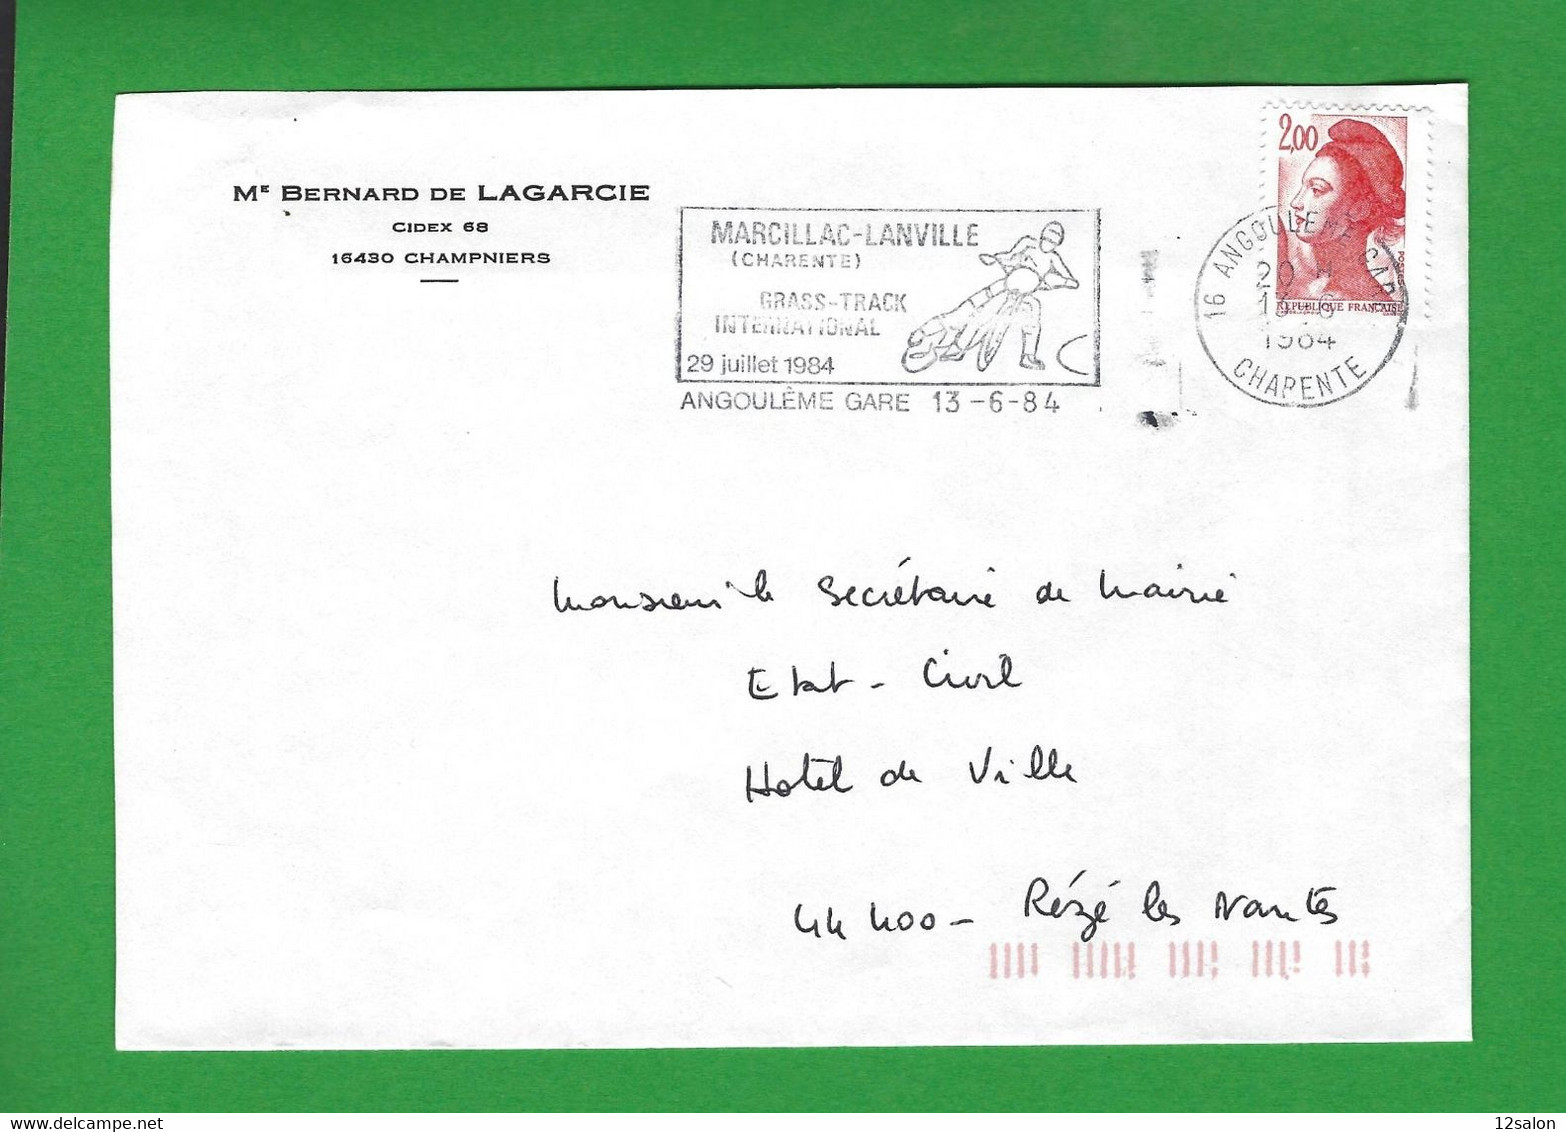 Mᴱ BERNARD DE LAGARCIE
CIDEX 68
16430 CHAMPNIERS
MARCILLAC-LANVILLE
(CHARENTE)
GRASS-TRACK
INTERNATIONAL
29 juillet 1984
ANGOULÊME GARE 13-6-84
2,00
POSTES
REPUBLIQUE FRANÇAISE
16 ANGOULEME GARE
20 H
13-6
1984
CHARENTE
Monsieur le Secrétaire de Mairie
Etat-Civil
Hotel de Ville
44400- Rézé les Nantes
12salon